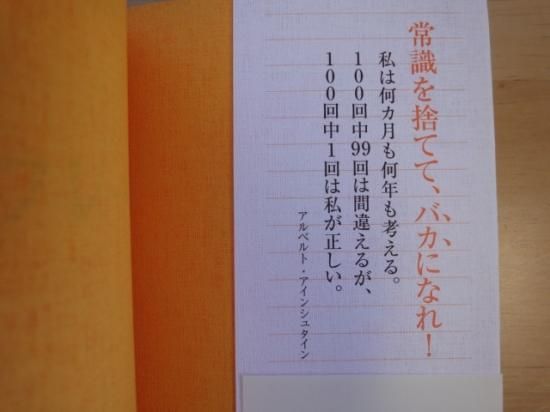 常識を捨てて、バカになれ！
私は何カ月も何年も考える。
100回中99回は間違えるが、
100回中1回は私が正しい。
アルベルト・アインシュタイン